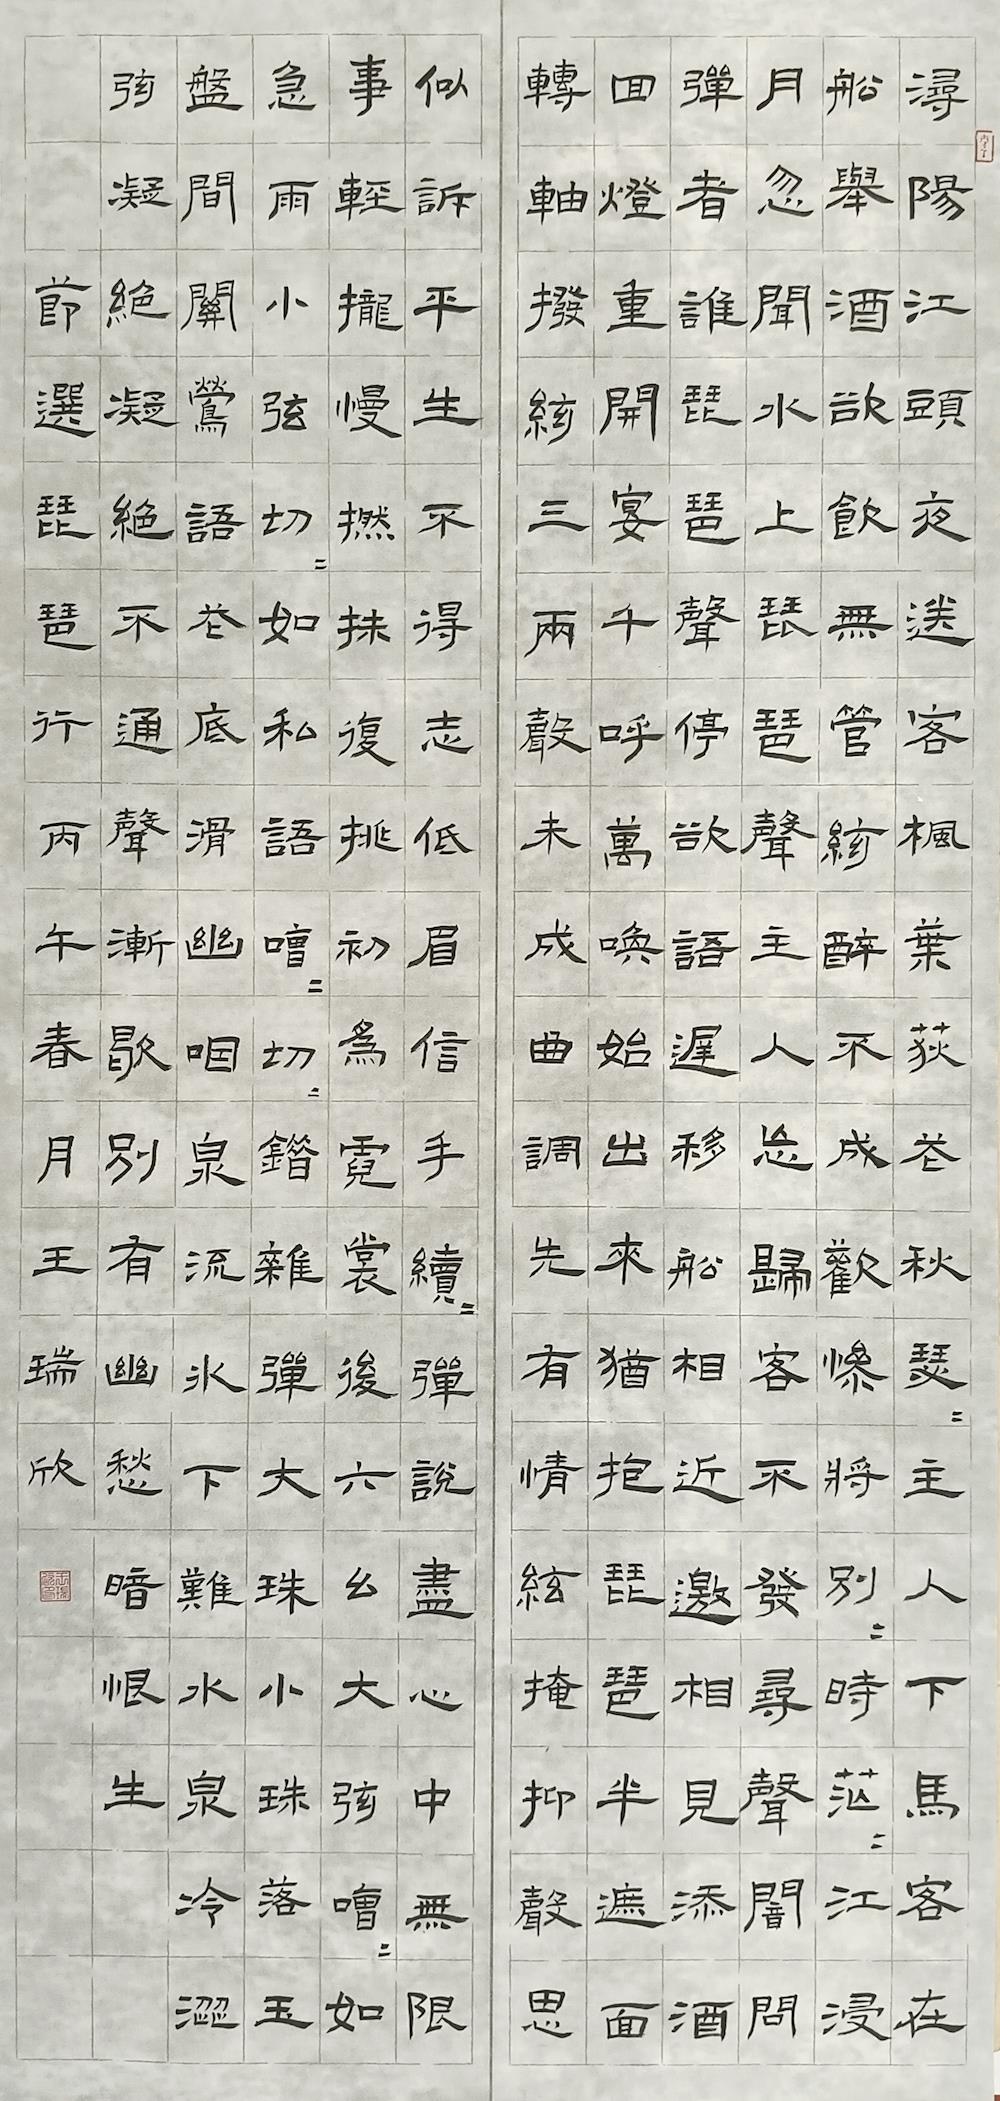 潯陽江頭夜送客楓葉荻花秋瑟〻主人下馬客在
船舉酒欲飲無管絃醉不成歡慘將別〻時茫〻江浸
月忽聞水上琵琶聲主人忘歸客不發尋聲闇問
彈者誰琵琶聲停欲語遲移船相近邀相見添酒
回燈重開宴千呼萬喚始出來猶抱琵琶半遮面
轉軸撥絃三兩聲未成曲調先有情絃掩抑聲思
似訴平生不得志低眉信手續〻彈說盡心中無限
事輕攏慢撚抹復挑初為霓裳後六幺大弦嘈〻如
急雨小弦切〻如私語嘈〻切〻錯雜彈大珠小珠落玉
盤間關鶯語花底滑幽咽泉流氷下難水泉冷澀
弦凝絕凝絕不通聲漸歇別有幽愁暗恨生
節選琵琶行丙午春月王瑞欣